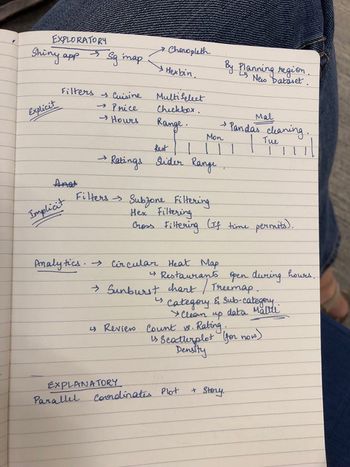 EXPLORATORY
Shiny app → Sg map → Choropleth
→ Hexbin.
By Planning region.
↳ New Dataset.
Explicit
Filters → Cuisine Multiselect
→ Price Checkbox.
→ Hours Range.
Mal
→ Pandas cleaning.
Mon Tue
Rest
→ Ratings Slider Range.
Implicit
Filters → Subzone Filtering
Hex Filtering
Cross Filtering (If time permits).
Analytics. → Circular Heat Map
↳ Restaurants open during hours.
→ Sunburst chart / Treemap.
↳ Category & Sub-category.
→ Clean up data
↳ Review Count vs. Rating.
↳ Scatterplot (for now)
Density
EXPLANATORY
Parallel Coordinates Plot + Story.